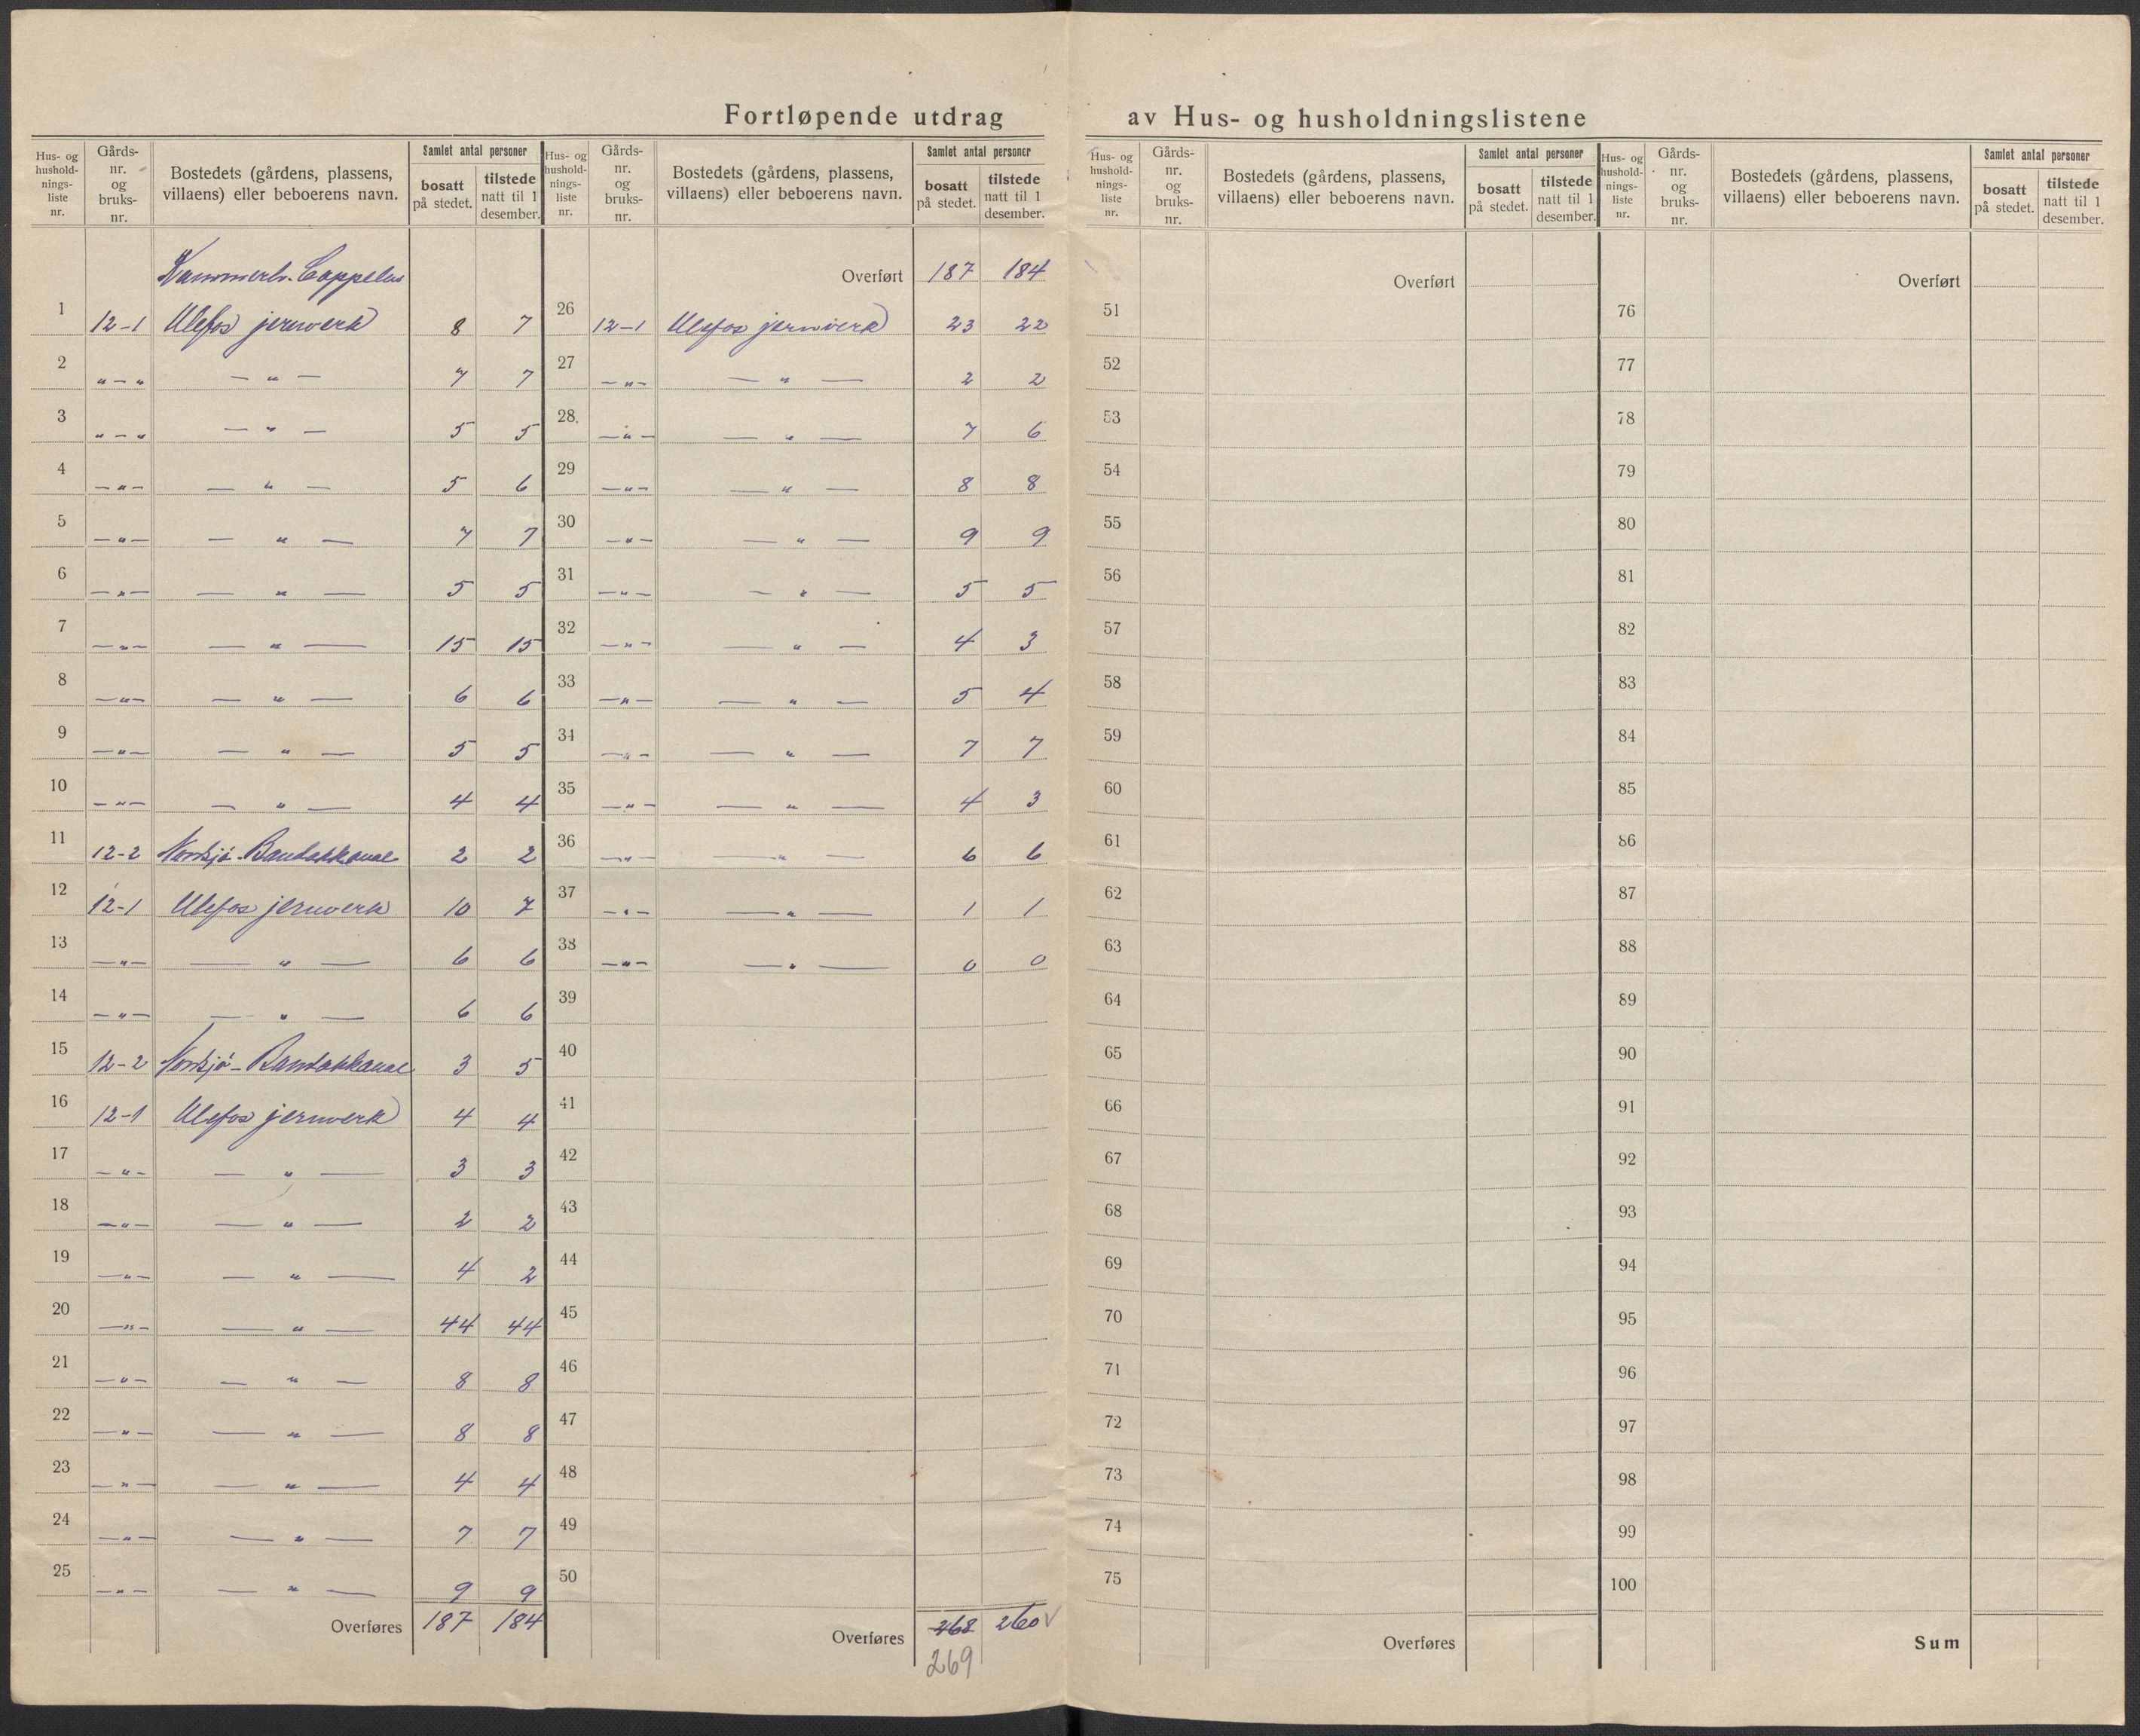 Fortløpende utdrag av Hus- og husholdningslistene
Hus- og husholdnings-liste nr. | Gårds-nr. og bruks-nr. | Bostedets (gårdens, plassens, villaens) eller beboerens navn. | Samlet antal personer | bosatt på stedet. | tilstede natt til 1 desember.
Kammerh. Cappelens
1 12-1 Ulefos jernverk 8 7
2 „ — „ — „ — 7 7
3 „ — „ — „ — 5 5
4 — „ — — „ — 5 6
5 — „ — — „ — 7 7
6 — „ — — „ — 5 5
7 — „ — — „ — 15 15
8 — „ — — „ — 6 6
9 — „ — — „ — 5 5
10 — „ — — „ — 4 4
11 12-2 Nordsjø-Bandakkanal 2 2
12 12-1 Ulefos jernverk 10 7
13 — „ — — „ — 6 6
14 — „ — — „ — 6 6
15 12-2 Nordsjø-Bandakkanal 3 5
16 12-1 Ulefos jernverk 4 4
17 — „ — — „ — 3 3
18 — „ — — „ — 2 2
19 — „ — — „ — 4 2
20 — „ — — „ — 44 44
21 — „ — — „ — 8 8
22 — „ — — „ — 8 8
23 — „ — — „ — 4 4
24 — „ — — „ — 7 7
25 — „ — — „ — 9 9
Overføres 187 184
Hus- og husholdnings-liste nr. | Gårds-nr. og bruks-nr. | Bostedets (gårdens, plassens, villaens) eller beboerens navn. | Samlet antal personer | bosatt på stedet. | tilstede natt til 1 desember.
Overført 187 184
26 12-1 Ulefos jernverk 23 22
27 — „ — — „ — 2 2
28. — „ — — „ — 7 6
29 — „ — — „ — 8 8
30 — „ — — „ — 9 9
31 — „ — — „ — 5 5
32 — „ — — „ — 4 3
33 — „ — — „ — 5 4
34 — „ — — „ — 7 7
35 — „ — — „ — 4 3
36 — „ — — „ — 6 6
37 — „ — — „ — 1 1
38 — „ — — „ — 0 0
39
40
41
42
43
44
45
46
47
48
49
50
Overføres 268 260 ✓
269
Hus- og husholdnings-liste nr. | Gårds-nr. og bruks-nr. | Bostedets (gårdens, plassens, villaens) eller beboerens navn. | Samlet antal personer | bosatt på stedet. | tilstede natt til 1 desember.
Overført
51
52
53
54
55
56
57
58
59
60
61
62
63
64
65
66
67
68
69
70
71
72
73
74
75
Overføres
Hus- og husholdnings-liste nr. | Gårds-nr. og bruks-nr. | Bostedets (gårdens, plassens, villaens) eller beboerens navn. | Samlet antal personer | bosatt på stedet. | tilstede natt til 1 desember.
Overført
76
77
78
79
80
81
82
83
84
85
86
87
88
89
90
91
92
93
94
95
96
97
98
99
100
Sum